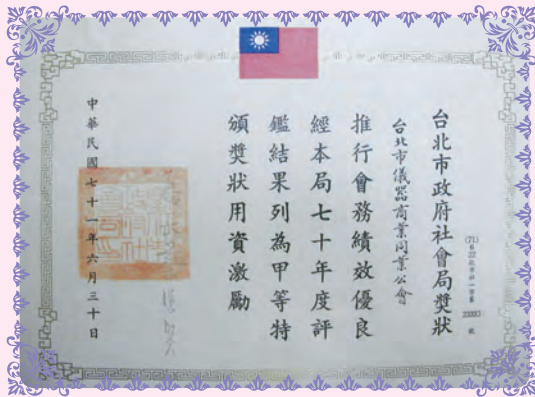 台北市政府社會局獎狀
台北市儀器商業同業公會
推行會務績效優良
經本局七十年度評
鑑結果列為甲等特
頒獎狀用資激勵
中華民國七十一年六月三十日